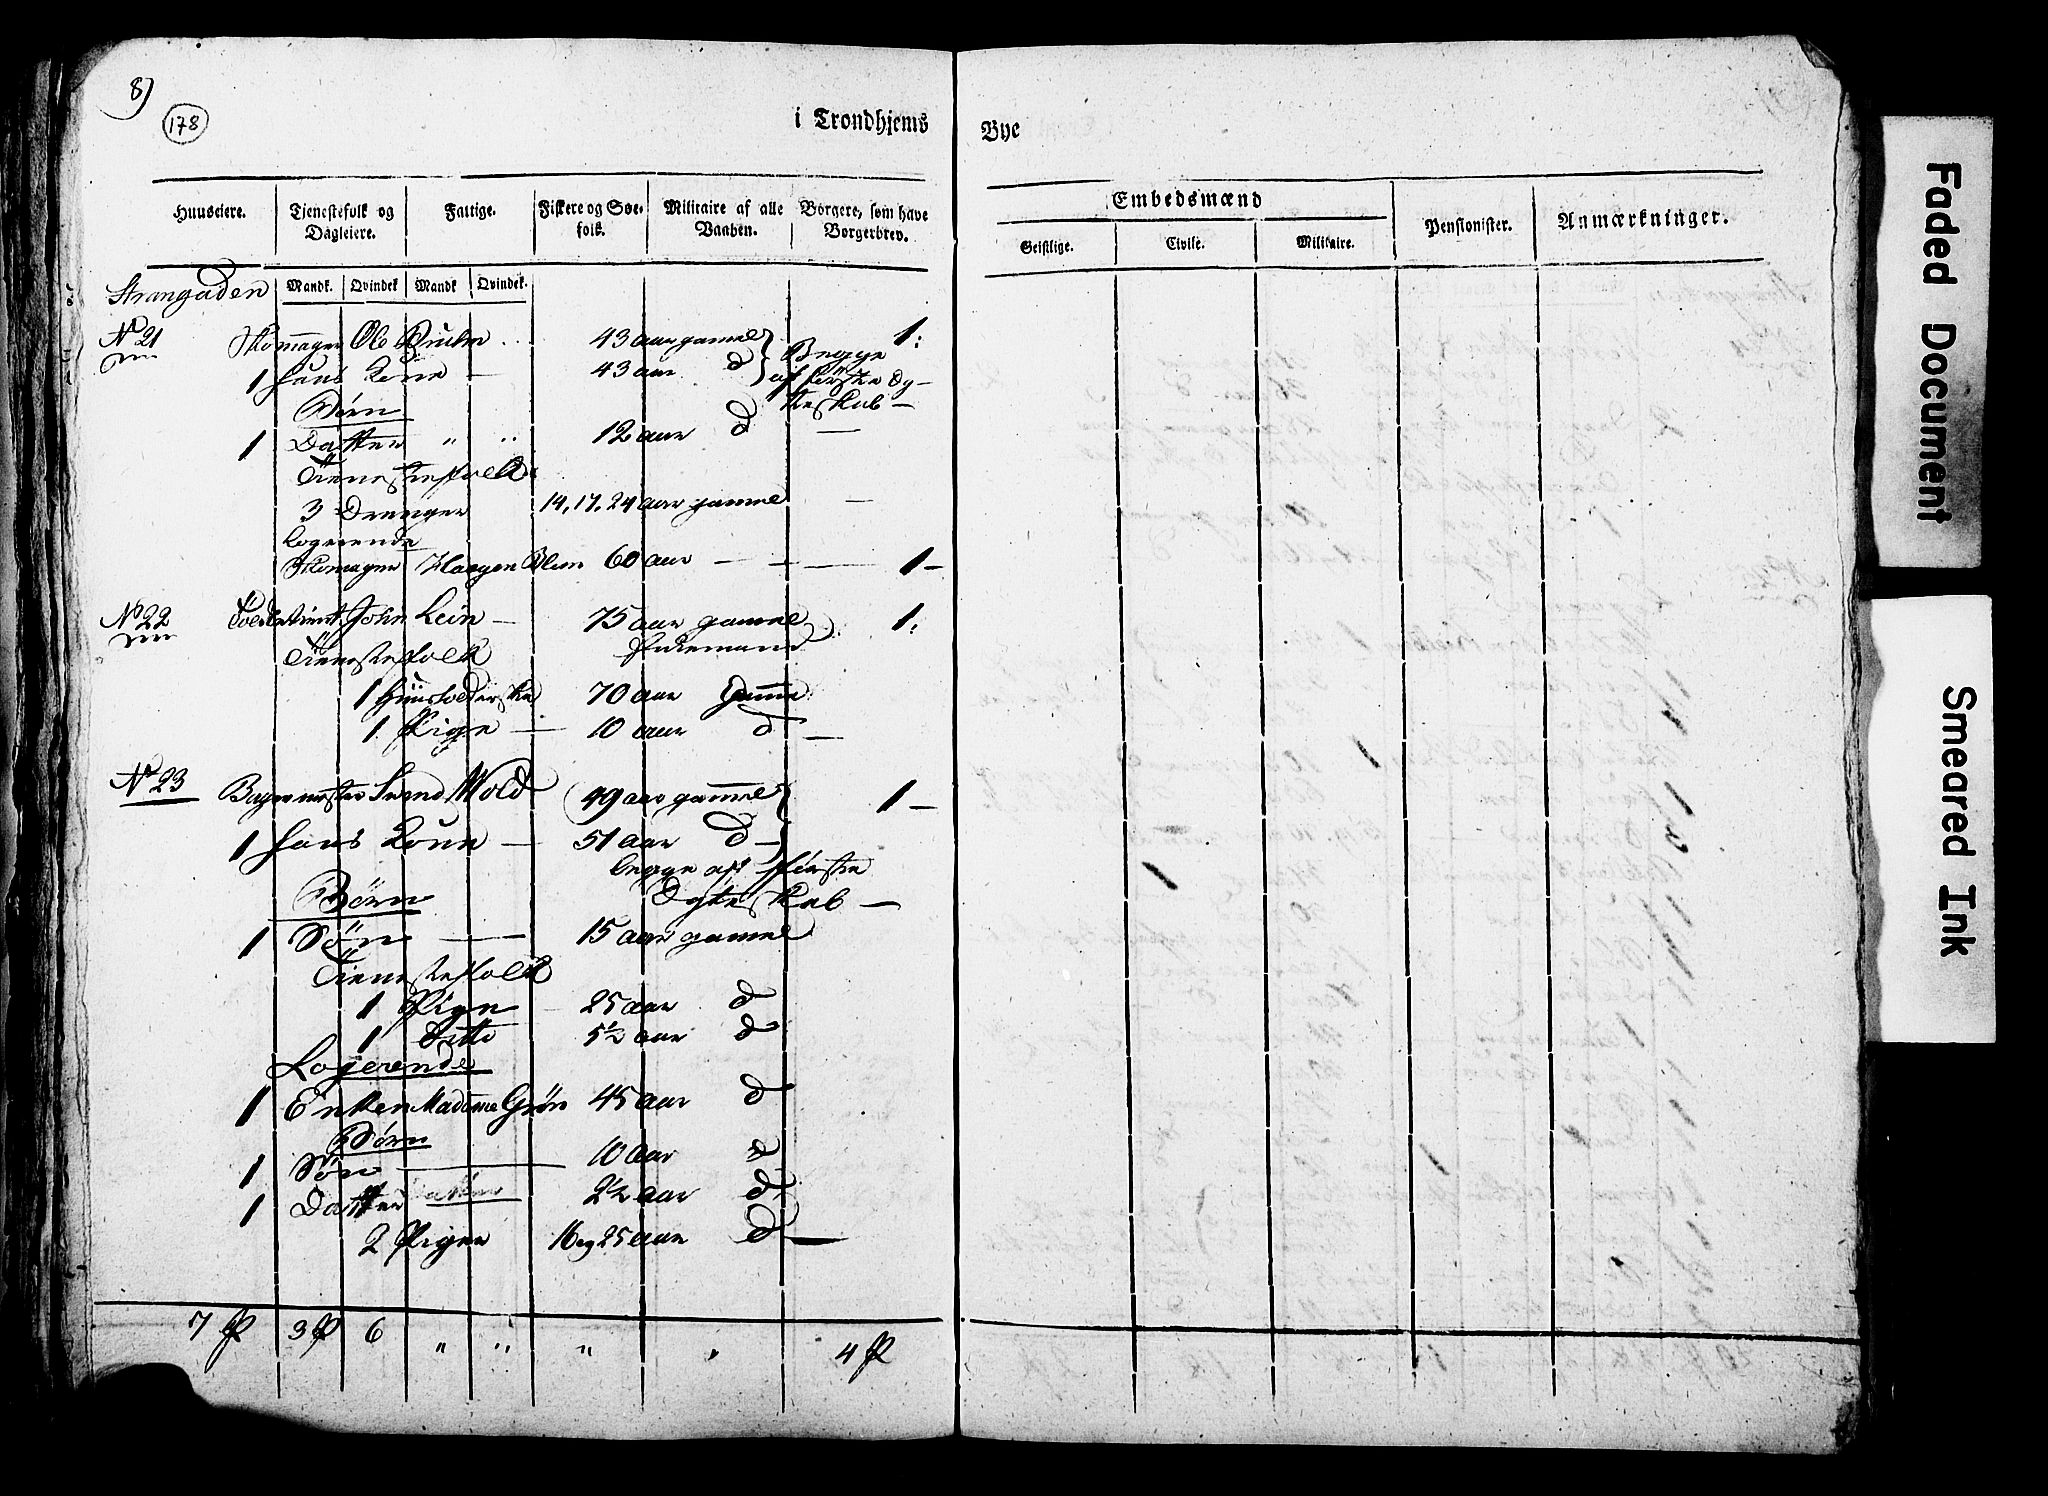 8)
178
i Trondhjems Bye
Huuseiere. Tjenestefolk og Dagleiere. Fattige. Fiskere og Søefolk. Militaire af alle Vaaben. Borgere, som have Borgerbrev. Embedsmænd Pensionister. Anmærkninger.
Geistlige. Civile. Militaire.
Mandk. Qvindek Mandk Qvindek.
Strangaden
No 21 Skomager Ole 43 aar gamel 1:
1 hans Kone — 43 aar d Begge af første Egteskab —
Børn
1 Datter " " 12 aar d —
Tienestefolk
3 Drenger 14, 17, 24 aar gamel —
Logerende
Skomager Haagen Blom 60 aar — — — 1 —
No 22 John Lein — 75 aar gamel 1:
Enkemand
Tienestefolk
1 Huusholderske 70 aar gamel
1 Pige — 10 aar d —
No 23 Bagermester Svend Wold 49 aar gamel 1 —
1 hans Kone — 51 aar d —
begge aft første
Egteskab —
Børn
1 Søn — 15 aar gamel
Tienestefolk
1 Pige — 25 aar d
1 Ditto 5½ aar d
Logerende
1 Enken Madame Grön 45 aar d
Børn
1 Søn — 10 aar d
1 Datter 2½ aar d
2 Piger 16 og 25 aar d —
7 3 6 " " " " 4
Faded Document
Smeared Ink